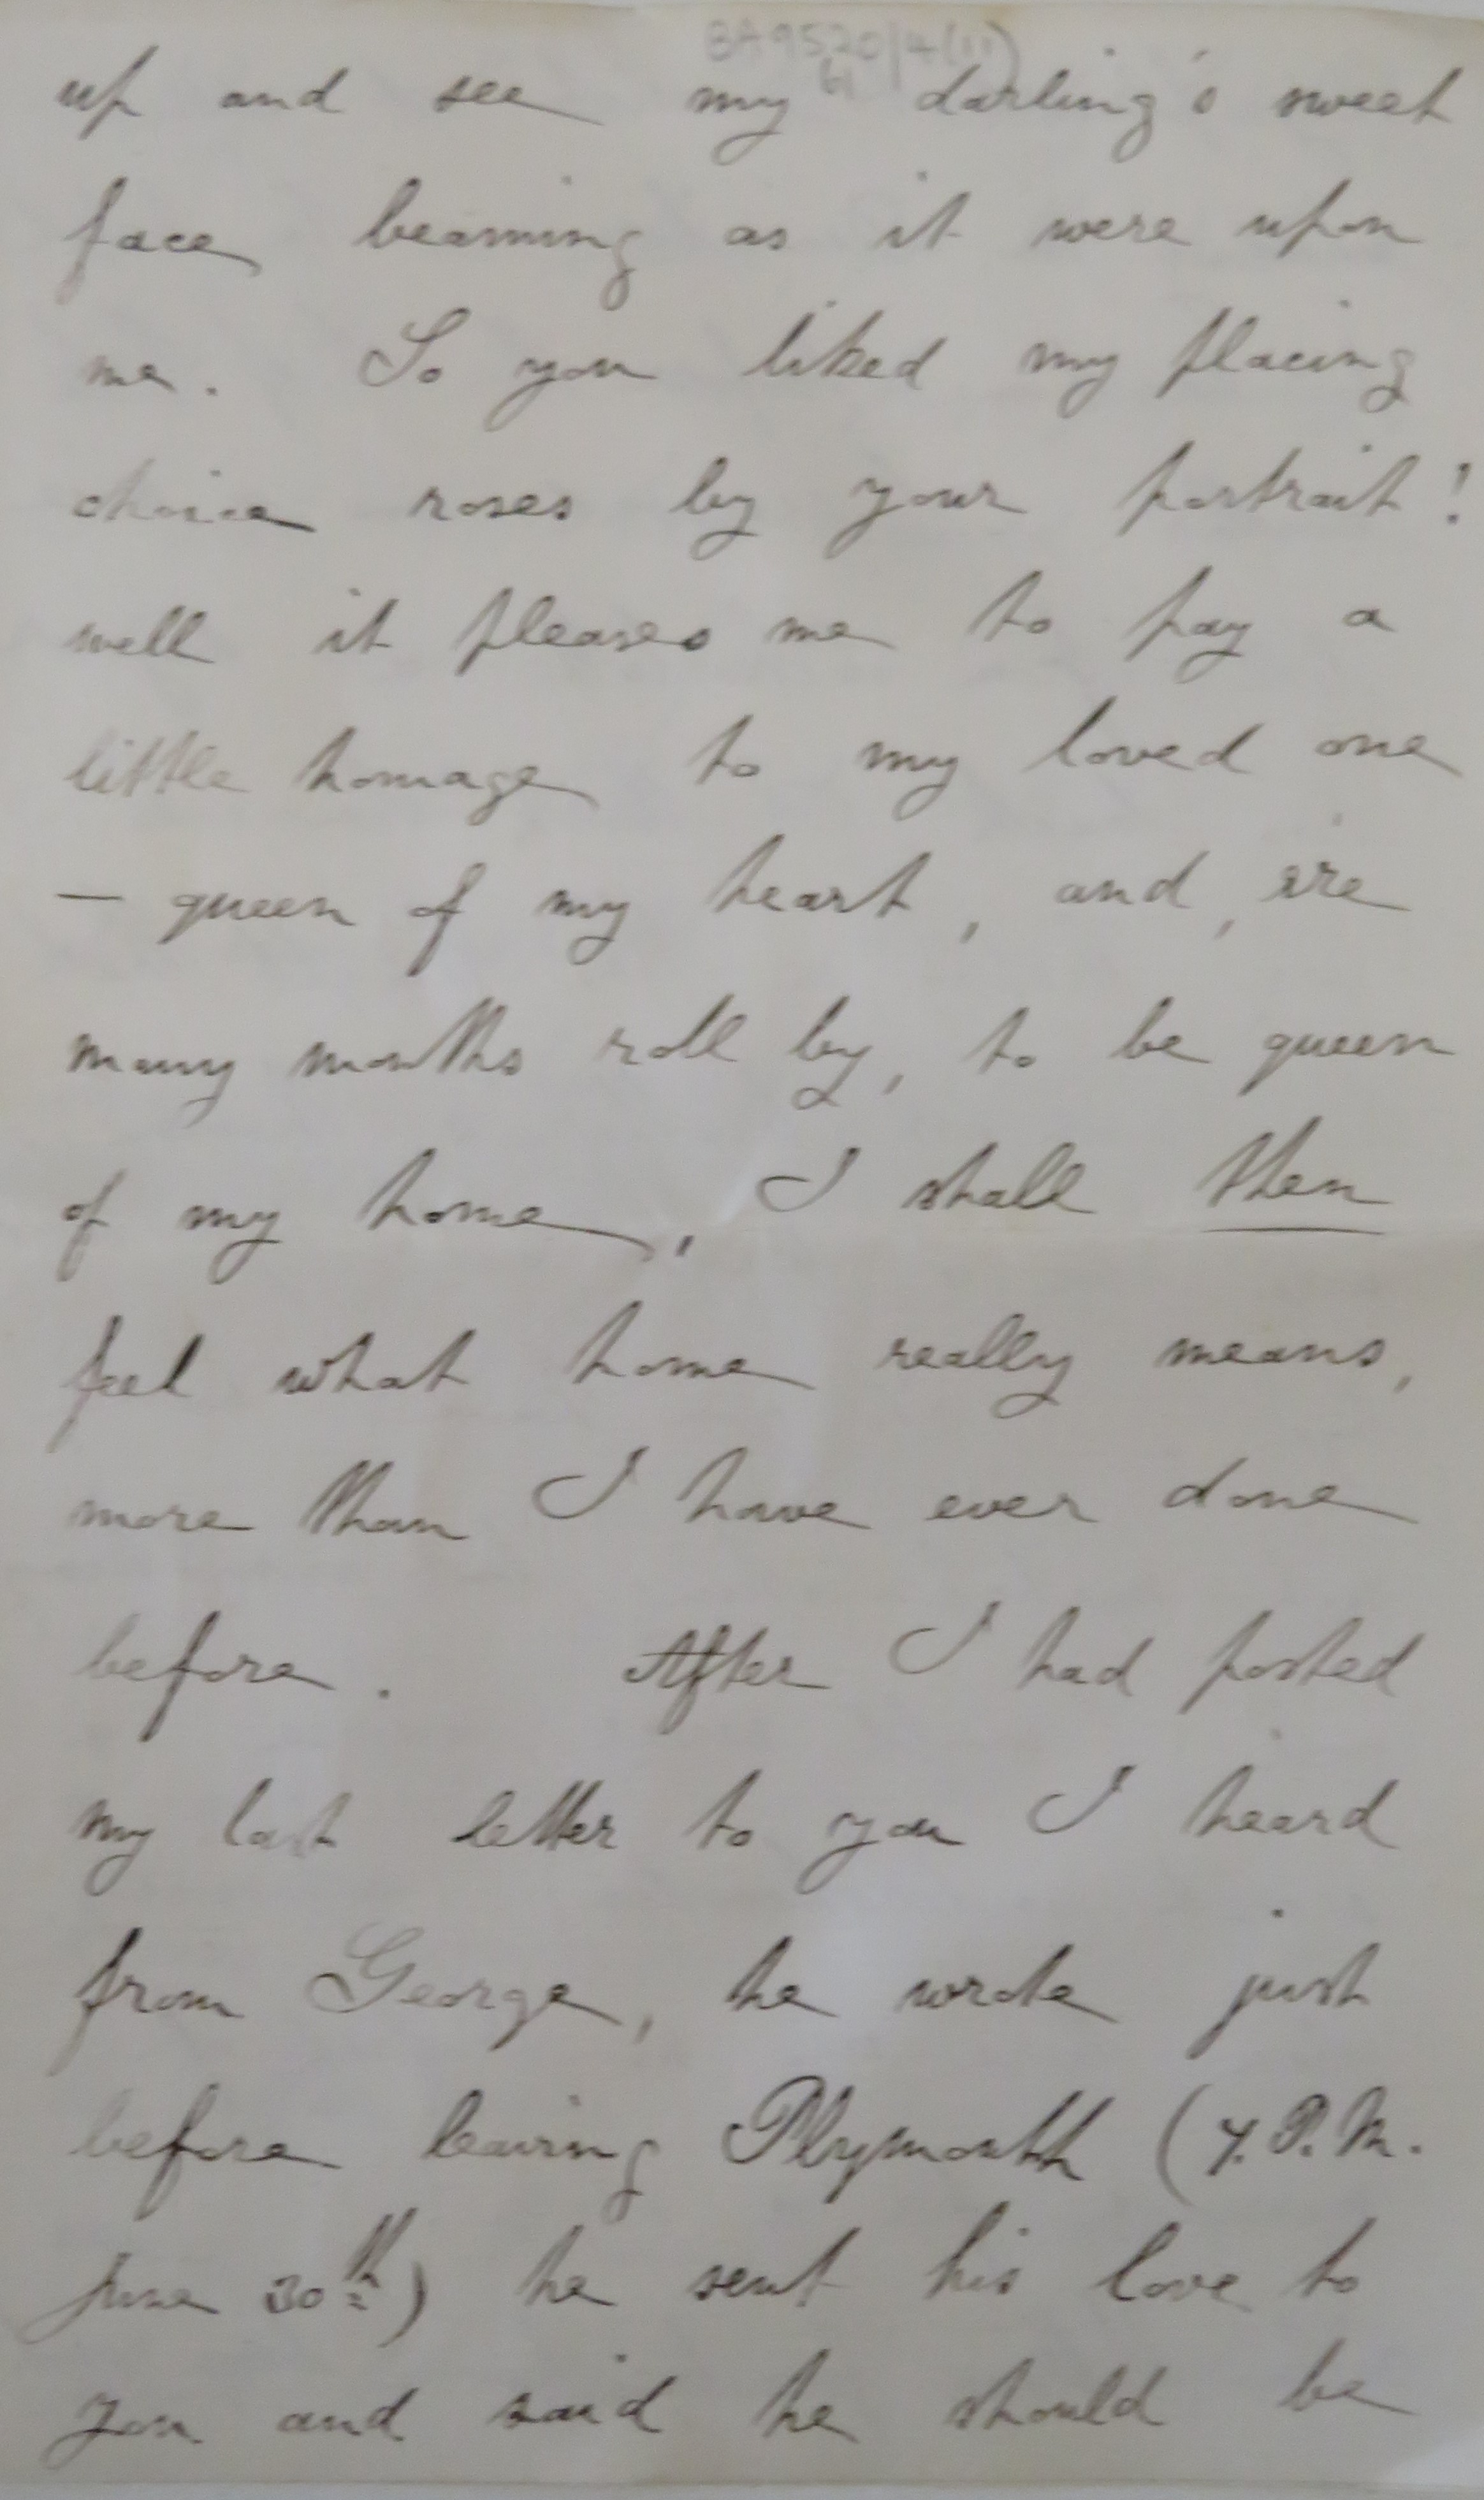 BA9520/4(11)
up and see my darling's sweet
face beaming as it were upon
me. So you liked my placing
choice roses by your portrait!
well it pleases me to pay a
little homage to my loved one
— queen of my heart, and, ere
many months roll by, to be queen
of my home, I shall then
feel what home really means,
more than I have ever done
before. After I had posted
my last letter to you I heard
from George, he wrote just
before leaving Plymouth (7. P.M.
June 30th) he sent his love to
you and said he should be